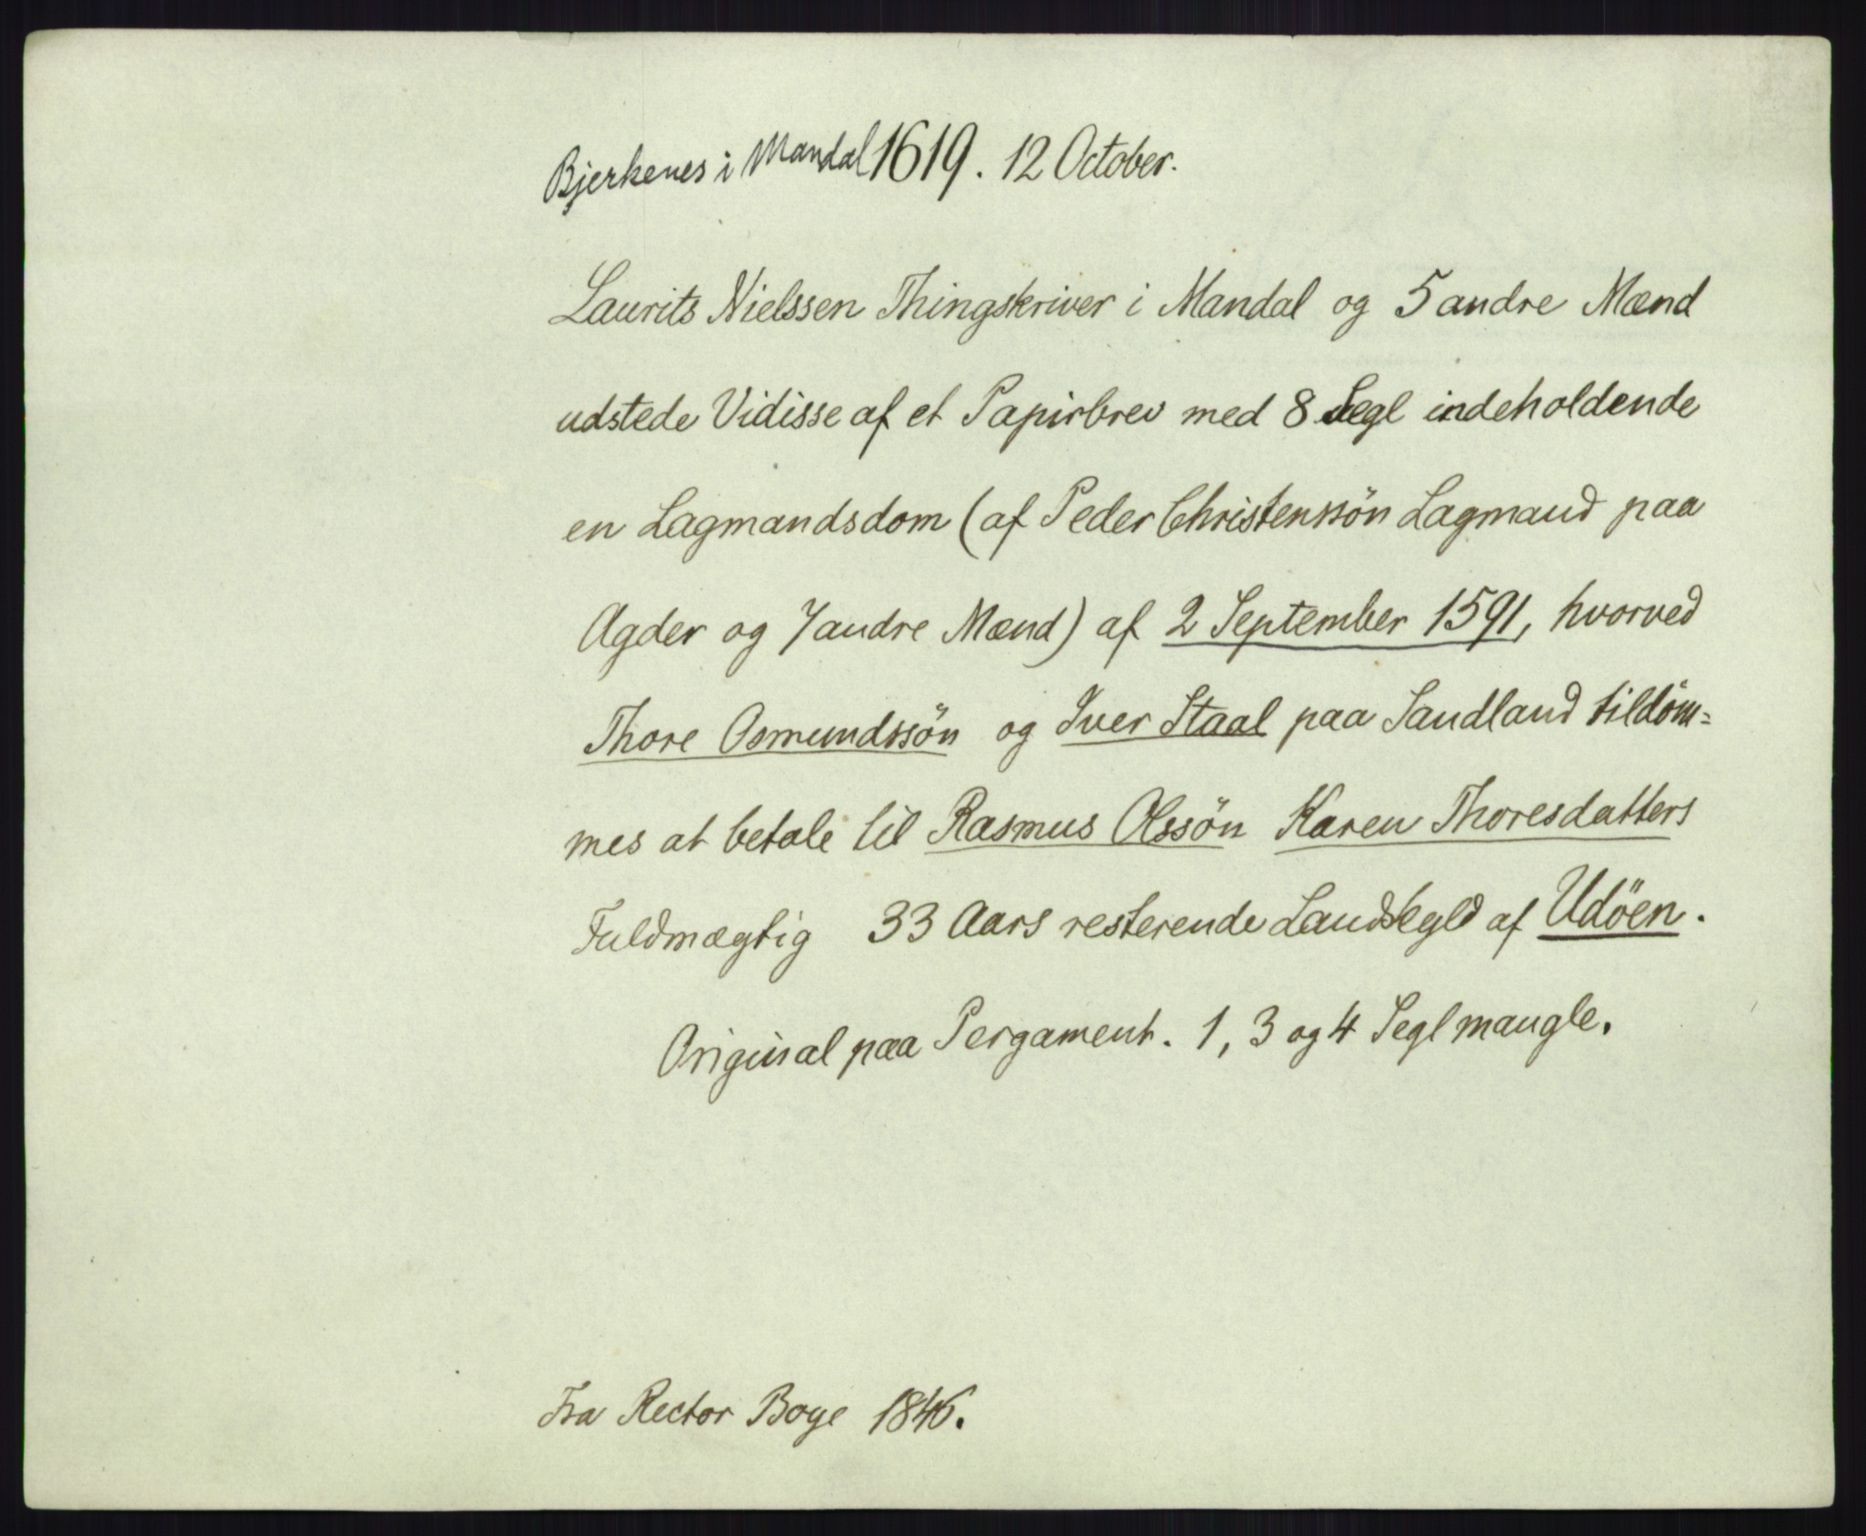 Bjerkenes i Mandal 1619. 12 October.
Laurits Nielssen Thingskriver i Mandal og 5 andre Mænd
udstede Vidisse af et Papirbrev med 8 Segl indeholdende
en Lagmandsdom (af Peder Christenssön Lagmand paa
Agder og 7 andre Mænd) af 2 September 1591, hvorved
Thore Osmundssön og Iver Staal paa Sandland tildöm=
mes at betale til Rasmus Olssön Karen Thoresdatters
Fuldmægtig 33 Aars resterende Landskyld af Udöen.
Original paa Pergament. 1, 3 og 4 Segl mangle.
Fra Rector Boye 1846.